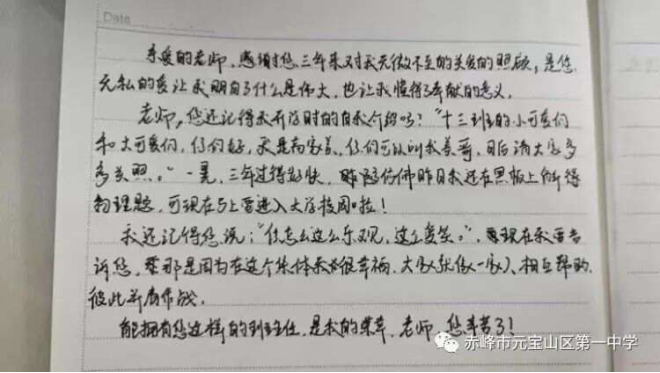 Date
亲爱的老师，感谢您三年来对我无微不至的关爱的照顾，是您
无私的爱让我明白了什么是伟大，也让我懂得了奉献的意义。
老师，您还记得我开学时的自我介绍吗？“十三班的小可爱们
和大可爱们，你们好，我是高家美，你们可以叫我美哥，日后请大家多
多关照。”一晃，三年过得好快，仿佛昨日我还在黑板上解得
物理题，可现在马上要进入大学校园啦！
我还记得您说：“你怎么这么乐观，这么爱笑。”，现在我要告
诉您，那是因为在这个集体我很幸福，大家就像一家人、相互帮助，
彼此并肩作战。
能拥有您这样的班主任，是我的荣幸，老师，您辛苦了！
赤峰市元宝山区第一中学